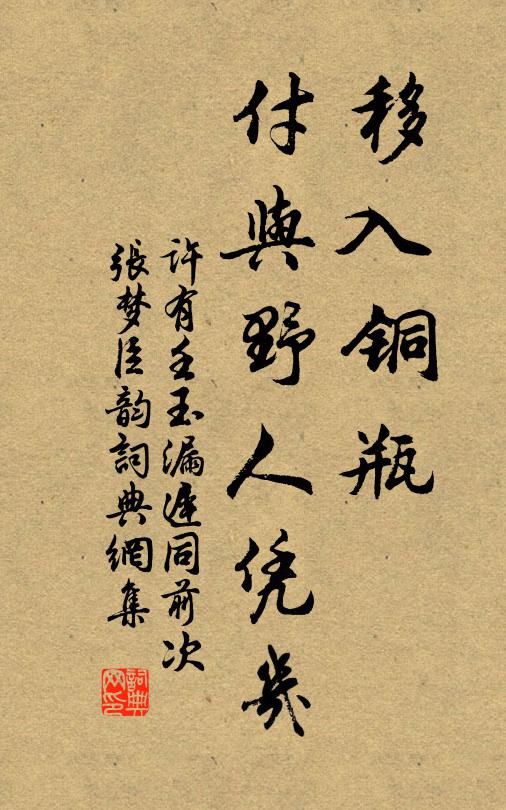 移入铜瓶
付與野人凭几
許有壬玉漏遲同前次
張梦臣韵詞典網集
詞典网印